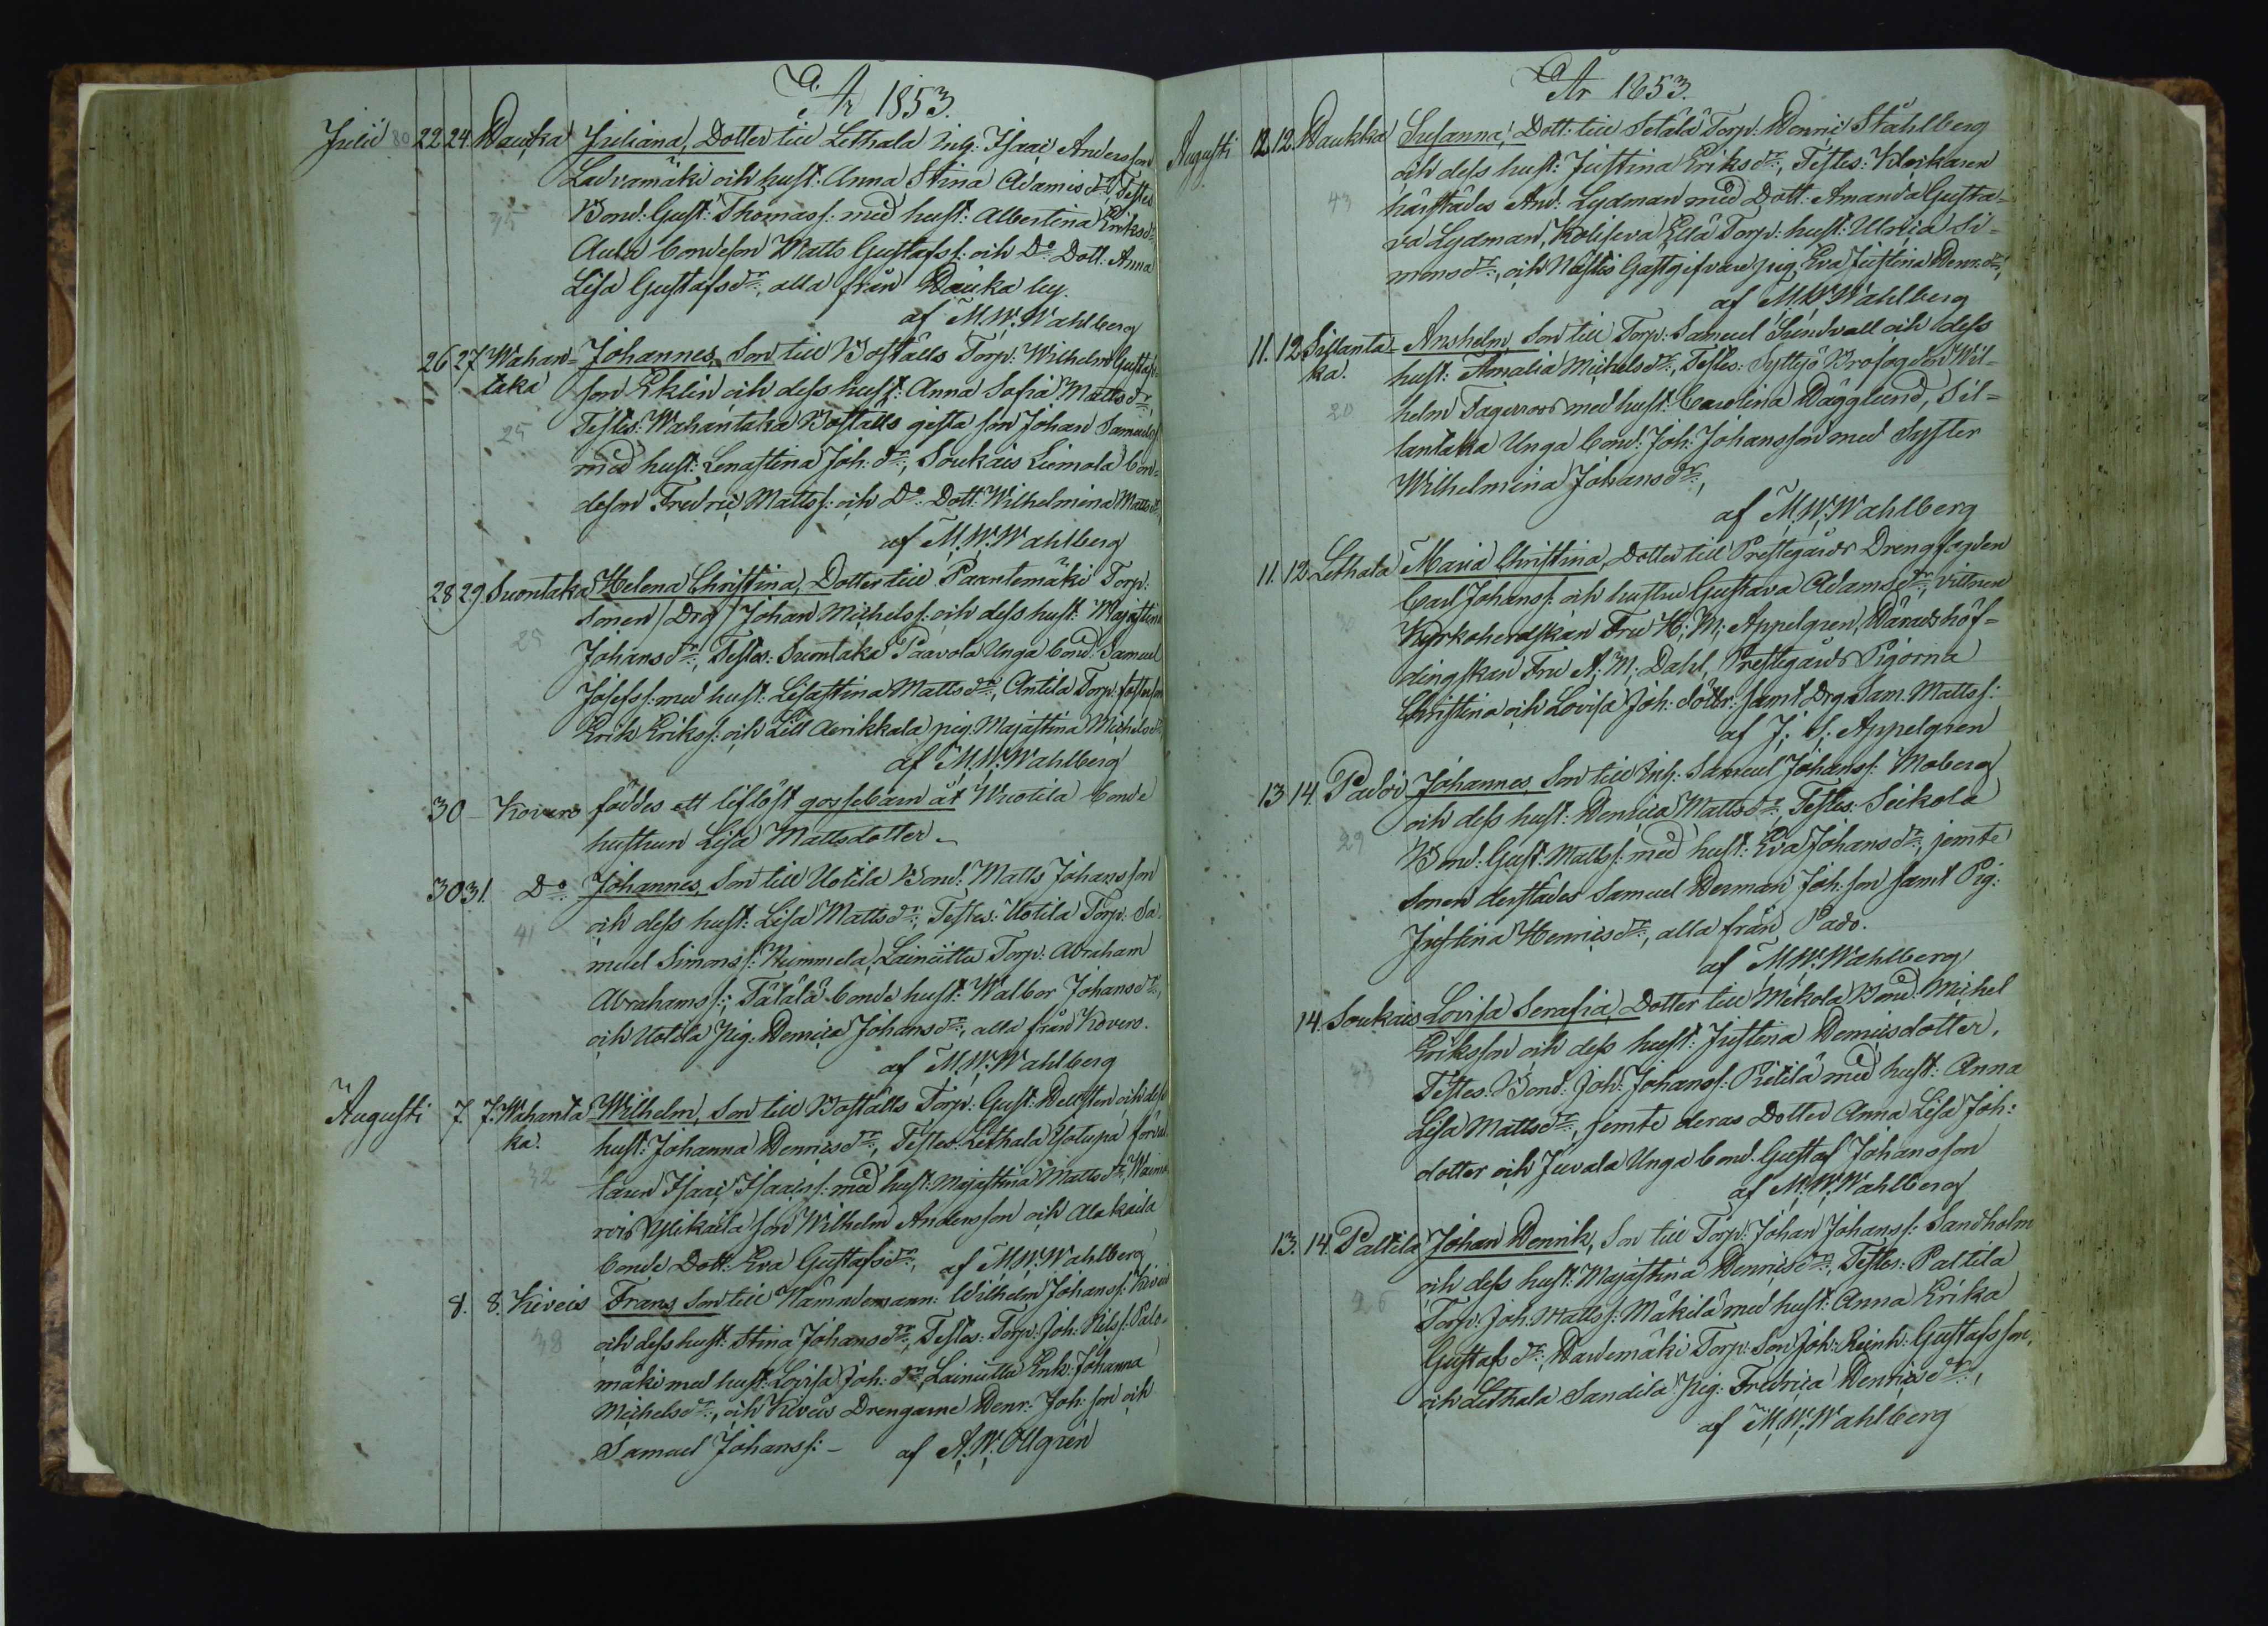 År 1853.
Julii 80 22 24 Hauka Juliana, Dotter till Lethala Inh: Isaac Andersson
Ladvamäki och hust: Anna Stina Adamsdr, Testes
35 Bond: Gust: Thomass: med hust: Albertina Eriksdr
Bondeson Matts Gustafss: och Do Dott: Anna
Lisa Gustafsdr, alla från Hauka by.
af M. W. Wahlberg
26 27 Wahan= Johannes, Son till Boställs Torp: Wilhelm Gustafs
taka son Eklin och dess hust: Anna Sofia Mattsdr
25 Testes: Wahantaka Boställs gifta son Johan Samuelss
med hust: Lenastina Joh:dr, Soukais Liimola Bon=
deson Fredric Mattss: och Do Dott: Wilhelmina Mattsdr,
af M. W. Wahlberg
28 29 Suontaka Helena Christina, Dotter till Paantemäki Torp:
Sonen /Drg/ Johan Michelss: och dess hust: Majastina
25 Johansdr, Testes: Suontaka Paavola Unga Bond: Samuel
Josefss: med hust: Lisastina Mattsdr, Antila Torp: fosterson
Erik Erikss: och Lill Aerikkala pig: Majastina Michelsdr
af M. W. Wahlberg
30 – Kovero föddes ett liflöst gossebarn åt Wuotila bonde
hustrun Lisa Mattsdotter –
30 31. Do Johannes, Son till Uotila Bond: Matts Johansson
41 och dess hust: Lisa Mattsdr, Testes: Uotila Torp: Sa=
muel Simonss: Hummela, Lainiittu Torp: Abraham
Abrahamss:, Tälälä bonde hust: Walbor Johansdr,
och Uotila pig: Henrica Johansdr, alla från Kovero.
af M. W. Wahlberg
Augusti 7. 7. Wahanta Wilhelm, Son till Boställs Torp: Gust: Hellsten och dess
ka. hust: Johanna Henricsdr, Testes: Lethala Yolupa förval
32 taren Isaac Isaacss: med hust: Majastina Mattsdr, Waima
ros Ylikaila son Wilhelm Andersson och Alakaila
bonde Dott: Eva Gustafsdr, af M. W. Wahlberg
8. 8. Kiveis Frans Son till Nämndemann: Wilhelm Johanss: Kiveis
38 och dess hust: Stina Johansdr, Testes: Torp: Joh: Nilss: Palo=
mäki med hust: Lovisa Joh:dr, Lainiittu Enk: Johanna
Michelsdr, och Kiveis Drengarne Henr: Joh:son och
Samuel Johanss: – af A. W. Ollgren
År 1853.
Augusti 12. 12. Haukka Susanna, Dott: till Setälä Torp: Henric Ståhlberg
och dess hust: Justina Eriksdr, Testes: Klockaren
43 härstädes And: Lydman med Dott: Amanda Gusta=
va Lydman, Koliseva Ellä Torp: hust: Ulrica Si=
monsdr, och Nästis Gästgifvare pig: Eva Justina Henr:dr,
af M. W. Wahlberg
11. 12. Sillanta= Anshelm, Son till Torp: Samuel Sundvall och dess
ka. hust: Amalia Michelsdr, Testes: Syttjö Brofogden Wil=
20 helm Fagerroos med hust: Carolina Hägglund, Sil=
lantaka Unga bond: Joh: Johansson med Syster
Wilhelmina Johansdr,
af M. W. Wahlberg
11. 12. Lethala Maria Christina, Dotter till Prestegårds Drengfogden
Carl Johanss: och hustru Gustava Adamsdr, vittnen
Kyrkoherdskan Fru H. M. Appelgren, Häradshöf=
dingskan Fru A. M. Dahl, Prestegårds Pigorna
Christina och Lovisa Joh: dött: samt Drg: Sam. Mattss:
af J. S. Appelgren
13 14. Pado Johannes, Son till Inh: Samuel Johanss: Moberg
och dess hust: Henrica Mattsdr, Testes: Seikola
29 Bond: Gust: Mattss: med hust: Eva Johansdr, jemte
Sonen derstädes Samuel Herman Joh:son samt Pig:
Justina Henricsdr, alla från Pado.
af M. W. Wahlberg
14. Soukais Lovisa Serafia, Dotter till Mikola Bond: Michel
Eriksson och dess hust: Justina Henricsdotter.
43 Testes: Bond: Joh: Johanss: Pietilä med hust: Anna
Lisa Mattsdr, jemte deras Dotter Anna Lisa Joh:
dotter och Juvala Unga bond. Gustaf Johansson
af M. W. Wahlberg
13. 14. Paltila Johan Henrik, Son till Torp: Johan Johanss: Sandholm
och dess hust: Majastina Henricsdr, Testes: Paltila
26 Torp: Joh: Mattss: Mäkilä med hust: Anna Erika
Gustafsdr, Harlemäki Torp: Son Joh: Reinh: Gustafsson,
och Lethala Sandila pig: Fredrica Henricsdr,
af M. W. Wahlberg